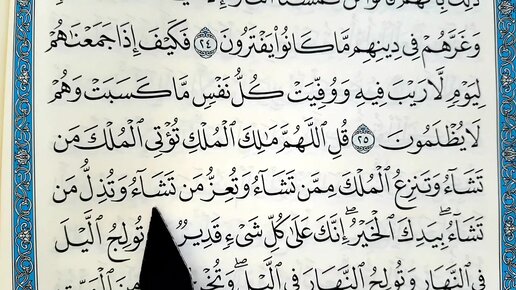 وَغَرَّهُمْ فِي دِينِهِم مَّا كَانُوا۟ يَفْتَرُونَ ٢٤ فَكَيْفَ إِذَا جَمَعْنَٰهُمْ
لِيَوْمٍ لَّا رَيْبَ فِيهِ وَوُفِّيَتْ كُلُّ نَفْسٍ مَّا كَسَبَتْ وَهُمْ
لَا يُظْلَمُونَ ٢٥ قُلِ ٱللَّهُمَّ مَٰلِكَ ٱلْمُلْكِ تُؤْتِى ٱلْمُلْكَ مَن
تَشَآءُ وَتَنزِعُ ٱلْمُلْكَ مِمَّن تَشَآءُ وَتُعِزُّ مَن تَشَآءُ وَتُذِلُّ مَن
تَشَآءُ ۖ بِيَدِكَ ٱلْخَيْرُ ۖ إِنَّكَ عَلَىٰ كُلِّ شَىْءٍ قَدِيرٌ تُولِجُ ٱلَّيْلَ
فِى ٱلنَّهَارِ وَتُولِجُ ٱلنَّهَارَ فِى ٱلَّيْلِ ۖ